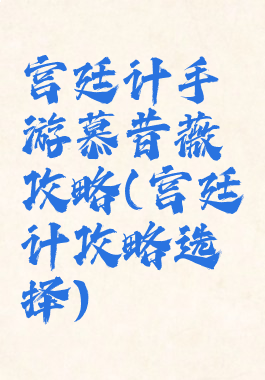 宫廷计手
游慕昔薇
攻略(宫廷
计攻略选
择)